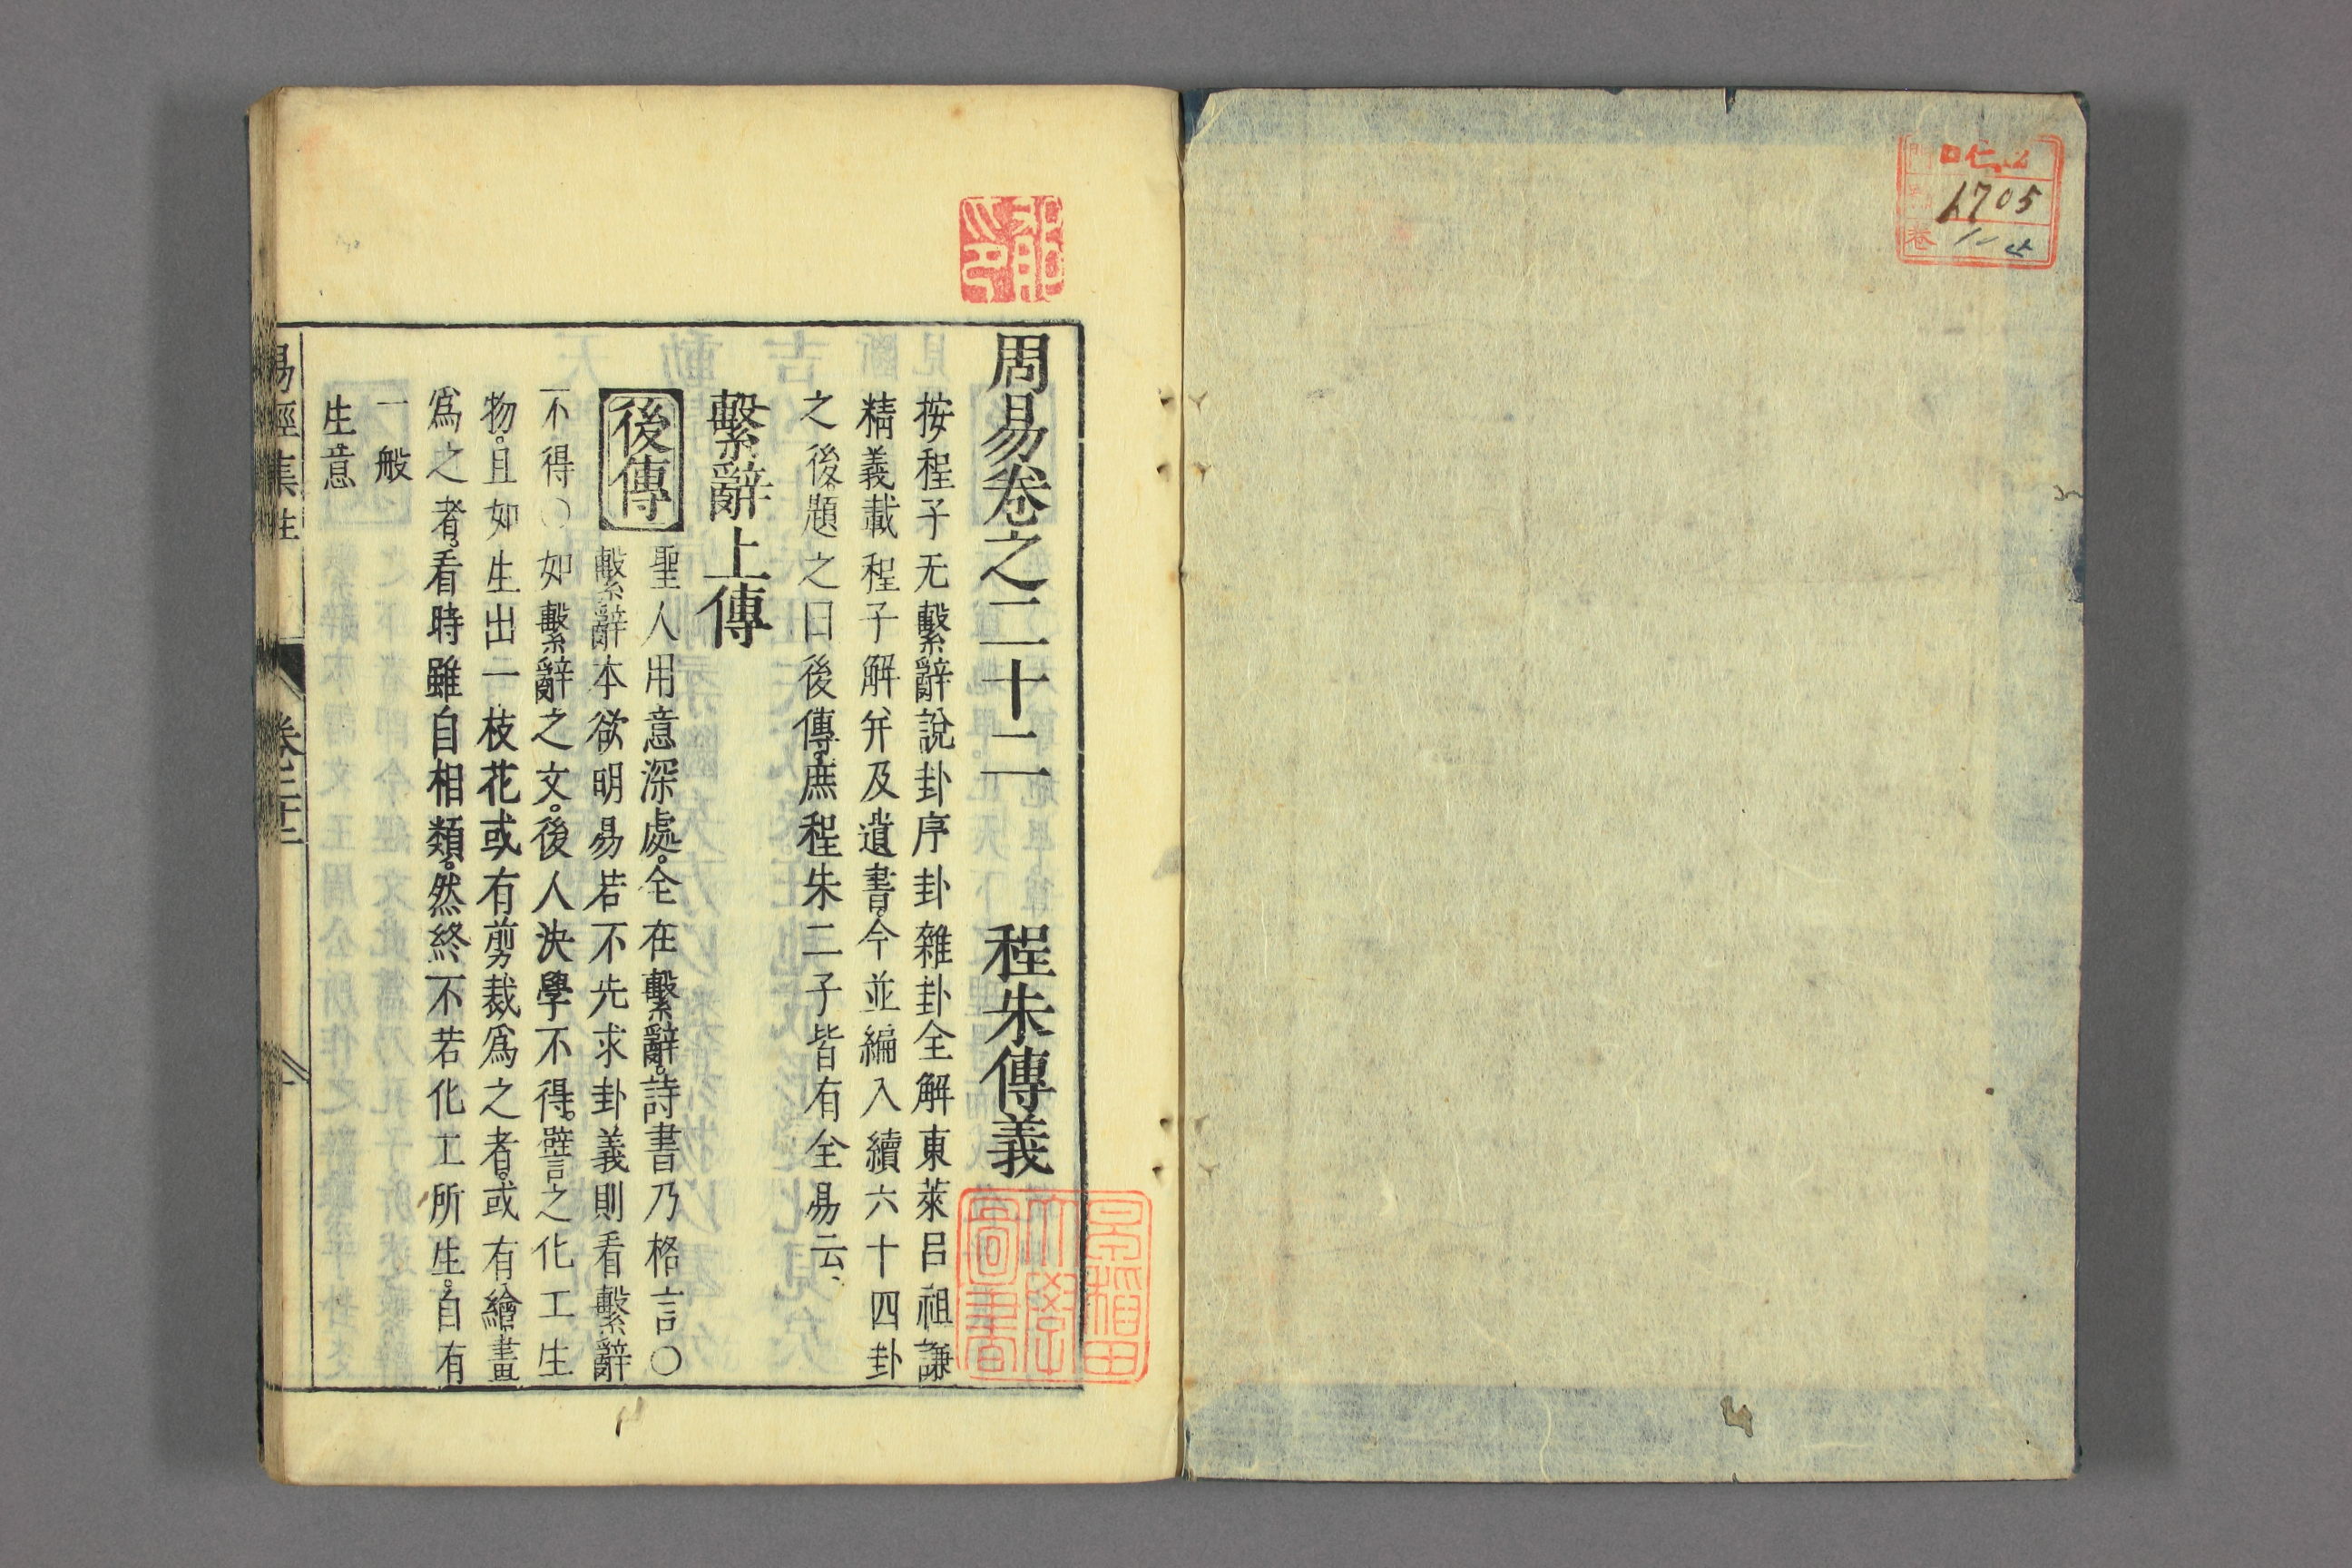 1705
周易卷之二十二　程朱傳義
按程子无繫辭說卦序卦雜卦全解東萊呂祖謙
精義載程子解、幷及遺書。今並編入續六十四卦
之後。題之曰後傳。庶程朱二子皆有全易云、
繫辭上傳
後傳　聖人用意深處。全在繫辭。詩書乃格言〇
繫辭本欲明易若不先求卦義則看繫辭
不得〇如繫辭之文。後人決學不得。譬之化工生
物。且如生出一枝花或有剪裁爲之者。或有繪畫
爲之者。看時雖自相類。然終不若化工所生。自有
一般
生意
易經集註　卷之二十二　一
早稻田
大學
圖書